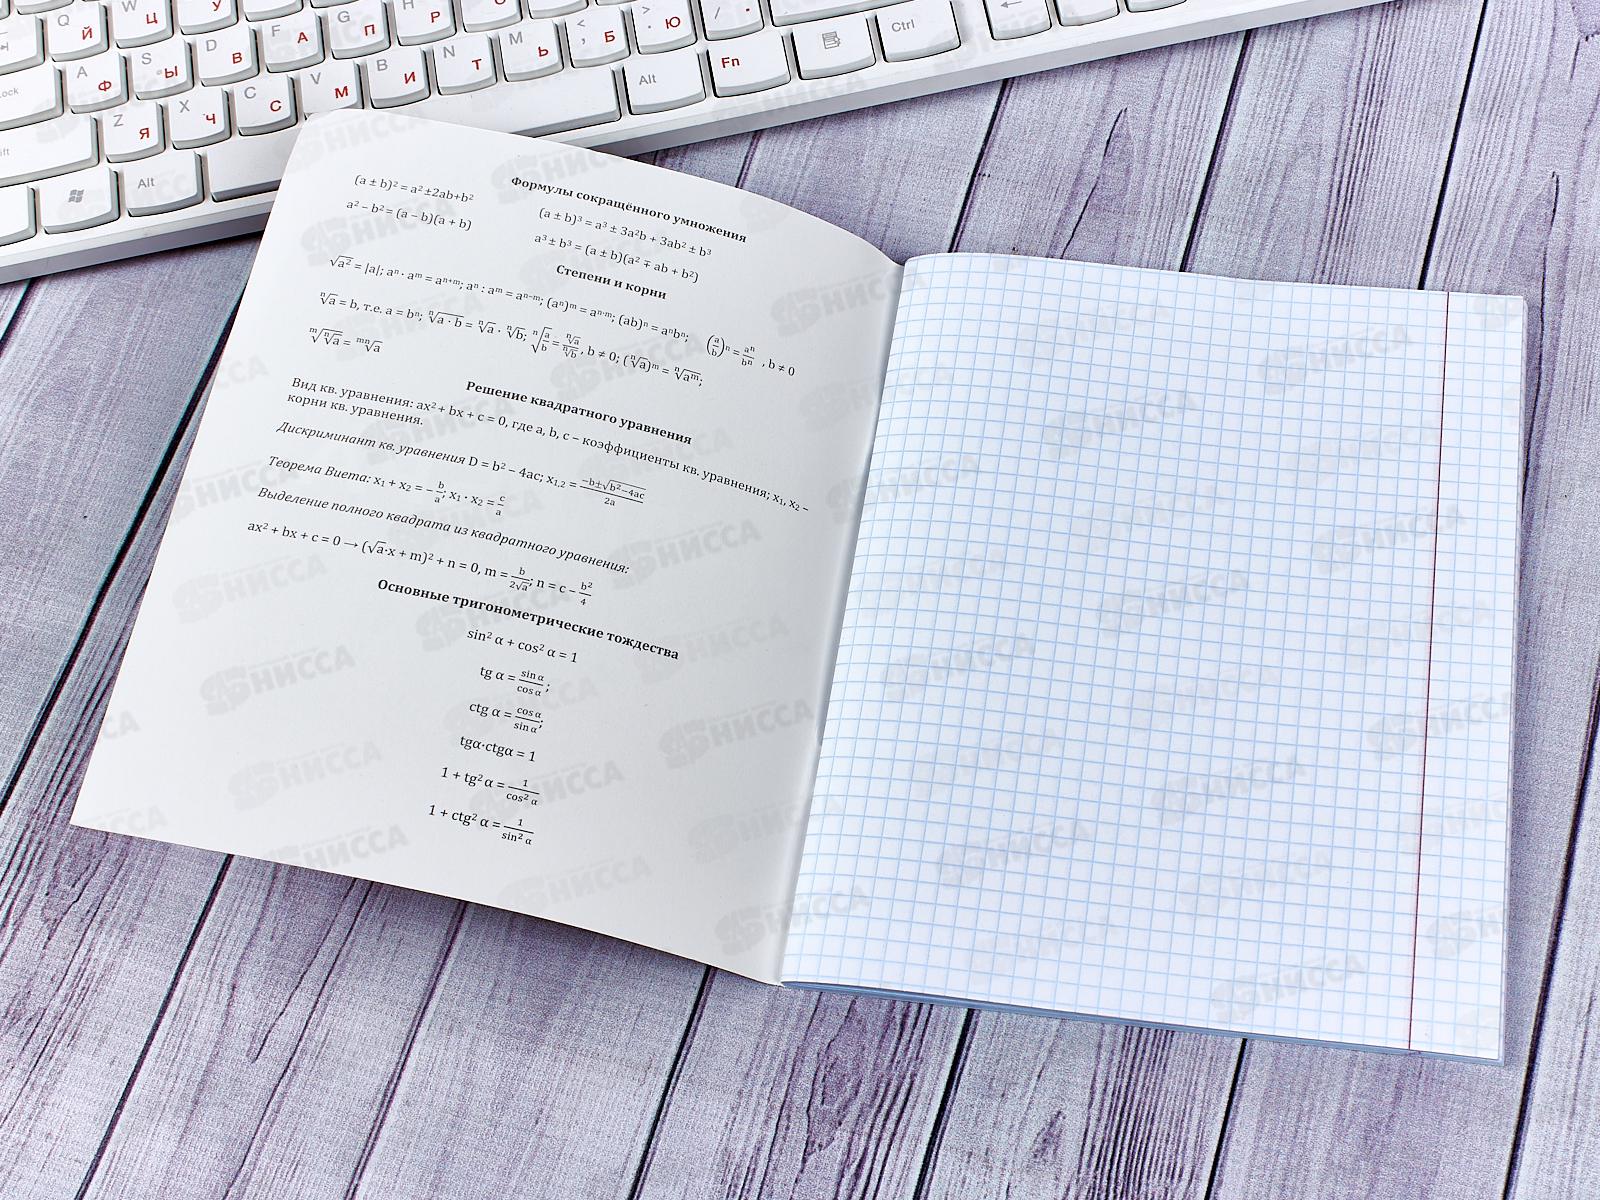 Q Й W Ц У G H P O
Lock A Ф S Ы D В F А П Р > . Ю / .
Shift Z Я X Ч C С V М B И N Т M Ь < , Б
Alt Alt Fn Ctrl
Формулы сокращённого умножения
(a ± b)² = a² ±2ab+b² (a ± b)³ = a³ ± 3a²b + 3ab² ± b³
a² – b² = (a – b)(a + b) a³ ± b³ = (a ± b)(a² ∓ ab + b²)
Степени и корни
√a² = |a|; aⁿ · aᵐ = aⁿ⁺ᵐ; aⁿ : aᵐ = aⁿ⁻ᵐ; (aⁿ)ᵐ = aⁿ·ᵐ; (ab)ⁿ = aⁿbⁿ; (a/b)ⁿ = aⁿ/bⁿ , b ≠ 0
ⁿ√a = b, т.е. a = bⁿ; ⁿ√(a · b) = ⁿ√a · ⁿ√b; ⁿ√(a/b) = ⁿ√a/ⁿ√b , b ≠ 0; (ⁿ√a)ᵐ = ⁿ√aᵐ;
ᵐ√(ⁿ√a) = ᵐⁿ√a
Решение квадратного уравнения
Вид кв. уравнения: ax² + bx + c = 0, где a, b, c – коэффициенты кв. уравнения; x₁, x₂ –
корни кв. уравнения.
Дискриминант кв. уравнения D = b² – 4ac; x₁,₂ = (–b±√(b²–4ac))/2a
Теорема Виета: x₁ + x₂ = – b/a; x₁ · x₂ = c/a
Выделение полного квадрата из квадратного уравнения:
ax² + bx + c = 0 → (√a·x + m)² + n = 0, m = b/(2√a); n = c – b²/4
Основные тригонометрические тождества
sin² α + cos² α = 1
tg α = sin α/cos α ;
ctg α = cos α/sin α;
tgα·ctgα = 1
1 + tg² α = 1/cos² α
1 + ctg² α = 1/sin² α
НИССА